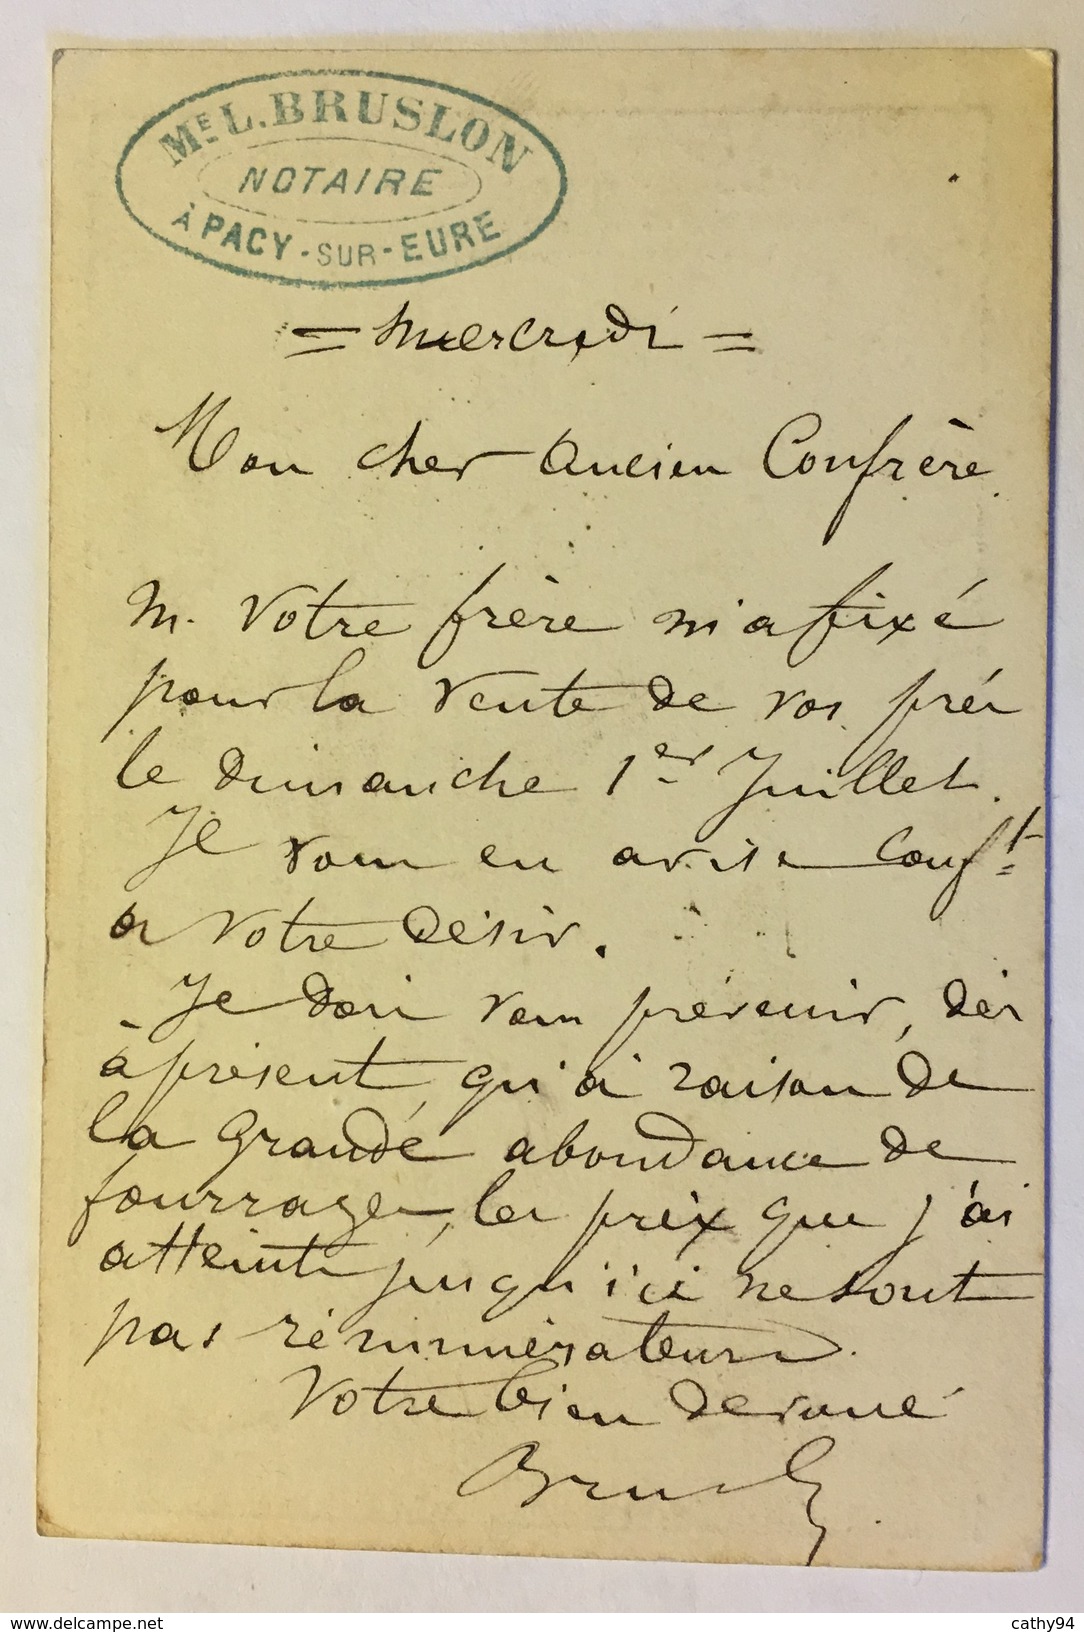 ME L. BRUSLON
NOTAIRE
À PACY-SUR-EURE
= Mercredi =
Mon cher ancien Confrère
M. Votre frère m'a fixé
pour la vente de vos prés
le dimanche 1er Juillet.
Je vous en avise conft
a votre désir.
Je dois vous prévenir, dès
à présent, qu'à raison de
la grande abondance de
fourrages, les prix que j'ai
atteints jusqu'ici ne sont
pas rémunérateurs.
Votre bien dévoué
Brusl
https://www.delcampe.net
cathy94